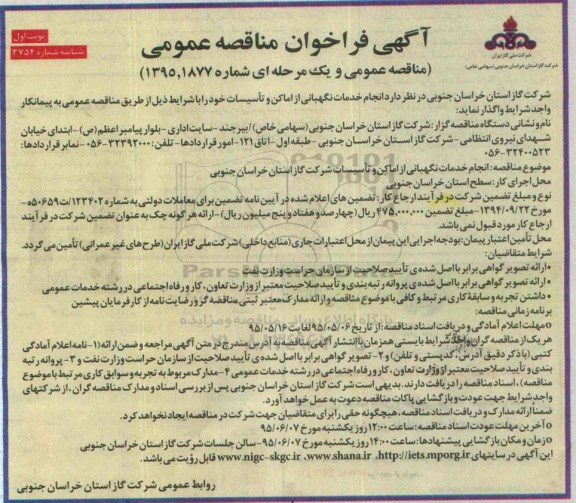 نوبت اول
شناسه شماره ۳۷۵۴
شرکت ملی گاز ایران
شرکت گاز استان خراسان جنوبی (سهامی خاص)
آگهی فراخوان مناقصه عمومی
(مناقصه عمومی و یک مرحله ای شماره ۱۳۹۵،۱۸۷۷)
شرکت گاز استان خراسان جنوبی در نظر دارد انجام خدمات نگهبانی از اماکن و تأسیسات خود را با شرایط ذیل از طریق مناقصه عمومی به پیمانکار
واجد شرایط واگذار نماید:
نام و نشانی دستگاه مناقصه گزار: شرکت گاز استان خراسان جنوبی (سهامی خاص)/ بیرجند - سایت اداری - بلوار پیامبر اعظم (ص) - ابتدای خیابان
شهدای نیروی انتظامی - شرکت گاز استان خراسان جنوبی - طبقه اول - اتاق ۱۲۱ - امور قراردادها - تلفن: ۳۲۳۹۲۰۰۰-۰۵۶ - نمابر قراردادها:
۳۲۴۰۰۵۲۳-۰۵۶
موضوع مناقصه: انجام خدمات نگهبانی از اماکن و تأسیسات شرکت گاز استان خراسان جنوبی
محل اجرای کار: سطح استان خراسان جنوبی
نوع و مبلغ تضمین شرکت در فرآیند ارجاع کار: تضمین های اعلام شده در آیین نامه تضمین برای معاملات دولتی به شماره ۱۲۳۴۰۲/ت۵۰۶۵۹ه
مورخ ۱۳۹۴/۰۹/۲۲ - مبلغ تضمین ۴۷۵,۰۰۰,۰۰۰ ریال (چهارصد و هفتاد و پنج میلیون ریال) - ارائه هرگونه چک به عنوان تضمین شرکت در فرآیند
ارجاع کار مورد قبول نمی باشد.
محل تأمین اعتبار پیمان: بودجه اجرایی این پیمان از محل اعتبارات جاری (منابع داخلی) شرکت ملی گاز ایران (طرح های غیر عمرانی) تأمین می گردد.
شرایط متقاضیان:
•ارائه تصویر گواهی برابر با اصل شده ی تأیید صلاحیت از سازمان حراست وزارت نفت
•ارائه تصویر گواهی برابر با اصل شده ی پروانه رتبه بندی و تأیید صلاحیت معتبر از وزارت تعاون، کار و رفاه اجتماعی در رشته خدمات عمومی
•داشتن تجربه و سابقه کاری مرتبط و کافی با موضوع مناقصه و ارائه مدارک معتبر ثبتی مناقصه گر و رضایت نامه از کارفرمایان پیشین
برنامه زمانی مناقصه:
مهلت اعلام آمادگی و دریافت اسناد مناقصه: از تاریخ ۹۵/۰۵/۰۶ لغایت ۹۵/۰۵/۱۶
هر یک از مناقصه گران واجد شرایط بایستی همزمان با انتشار آگهی مناقصه به آدرس مندرج در متن آگهی مراجعه و ضمن ارائه (۱- نامه اعلام آمادگی
کتبی (با ذکر دقیق آدرس، کد پستی و تلفن) و ۲- تصویر گواهی برابر با اصل شده ی تأیید صلاحیت از سازمان حراست وزارت نفت و ۳- پروانه رتبه
بندی و تأیید صلاحیت معتبر از وزارت تعاون، کار و رفاه اجتماعی در رشته خدمات عمومی ۴- مدارک مربوط به تجربه و سوابق کاری مرتبط با موضوع
مناقصه)، اسناد مناقصه را دریافت دارند. بدیهی است شرکت گاز استان خراسان جنوبی پس از بررسی اسناد و مدارک مناقصه گران، از شرکتهای
واجد شرایط جهت عودت و بازگشایی پاکات مناقصه دعوت به عمل خواهد آورد.
ضمنا ارائه مدارک و دریافت اسناد مناقصه، هیچگونه حقی را برای متقاضیان جهت شرکت در مناقصه ایجاد نخواهد کرد.
آخرین مهلت عودت اسناد مناقصه: ساعت ۱۲:۰۰ روز یکشنبه مورخ ۹۵/۰۶/۰۷
زمان و مکان بازگشایی پیشنهادها: ساعت ۱۴:۰۰ روز یکشنبه مورخ ۹۵/۰۶/۰۷ - سالن جلسات شرکت گاز استان خراسان جنوبی
این آگهی در سایتهای http://iets.mporg.ir، www.shana.ir، www.nigc-skgc.ir قابل رؤیت می باشد.
روابط عمومی شرکت گاز استان خراسان جنوبی